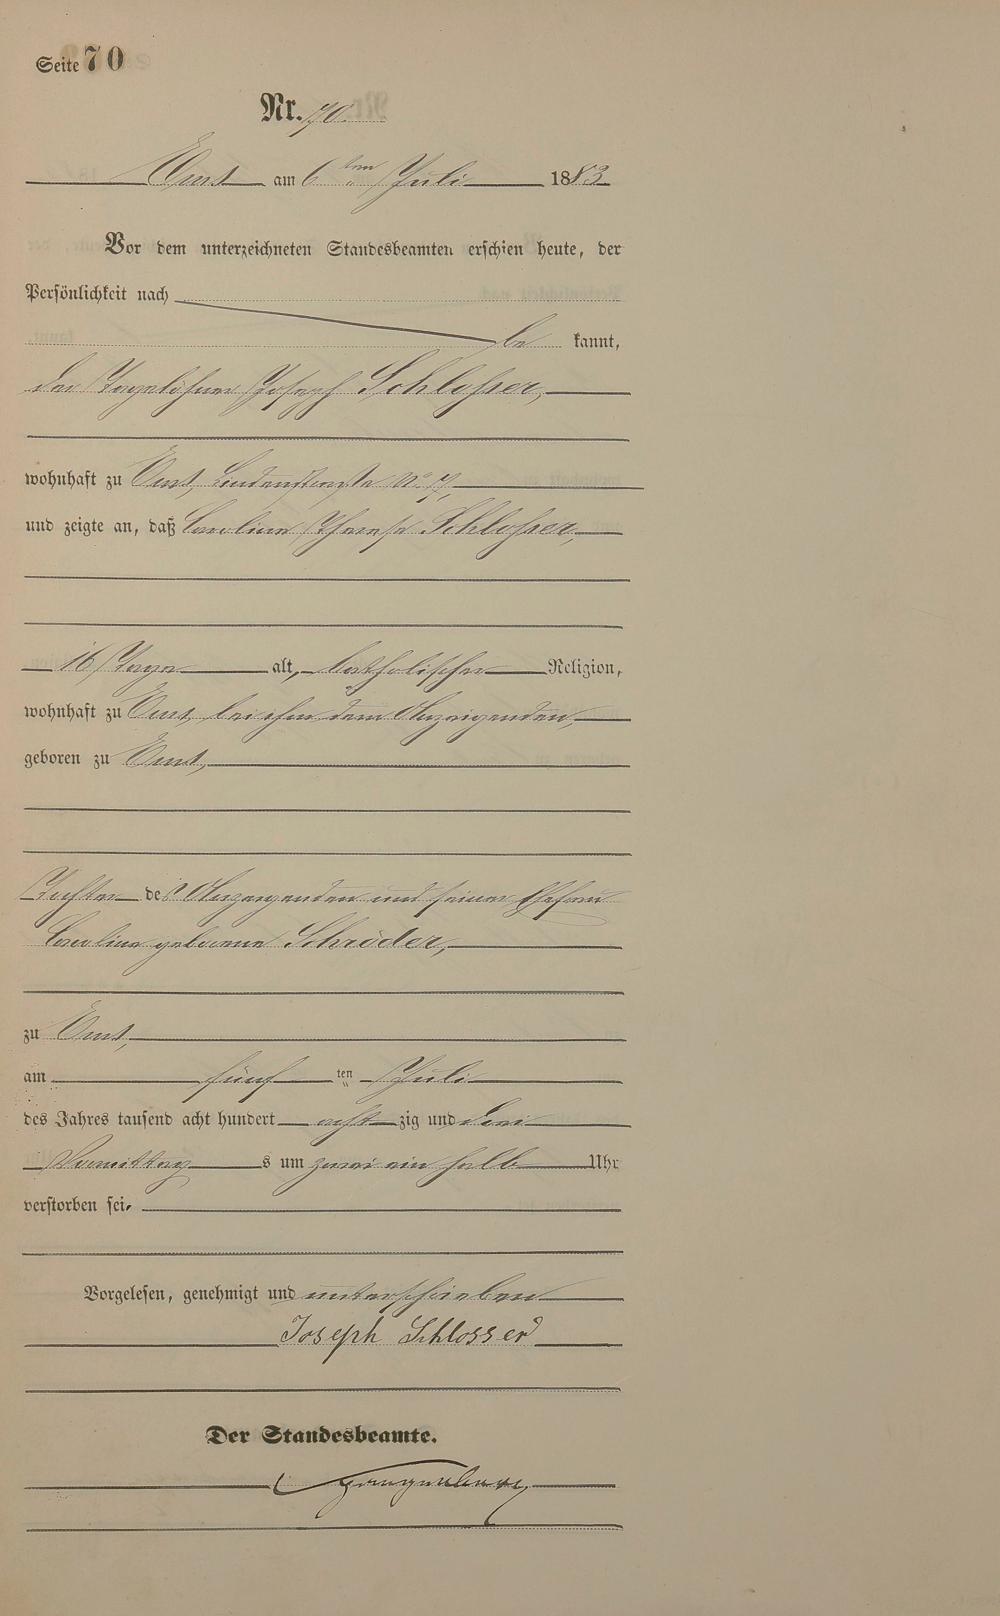 Seite 70
Nr. 70.
Ems am 6ten Juli 1883.
Vor dem unterzeichneten Standesbeamten erschien heute, der
Persönlichkeit nach
be kannt,
der Tagelöhner Joseph Schlosser,
wohnhaft zu Ems, Lindenstraße No 7,
und zeigte an, daß Caroline Therese Schlosser,
16 Tage alt, katholischer Religion,
wohnhaft zu Ems, bei ihm dem Anzeigenden,
geboren zu Ems,
Tochter des Anzeigenden und seiner Ehefrau
Caroline geborene Schröder,
zu Ems,
am fünf ten Juli
des Jahres tausend acht hundert acht zig und drei
Vormittag s um zwei ein halb Uhr
verstorben sei.
Vorgelesen, genehmigt und unterschrieben
Joseph Schlosser
Der Standesbeamte.